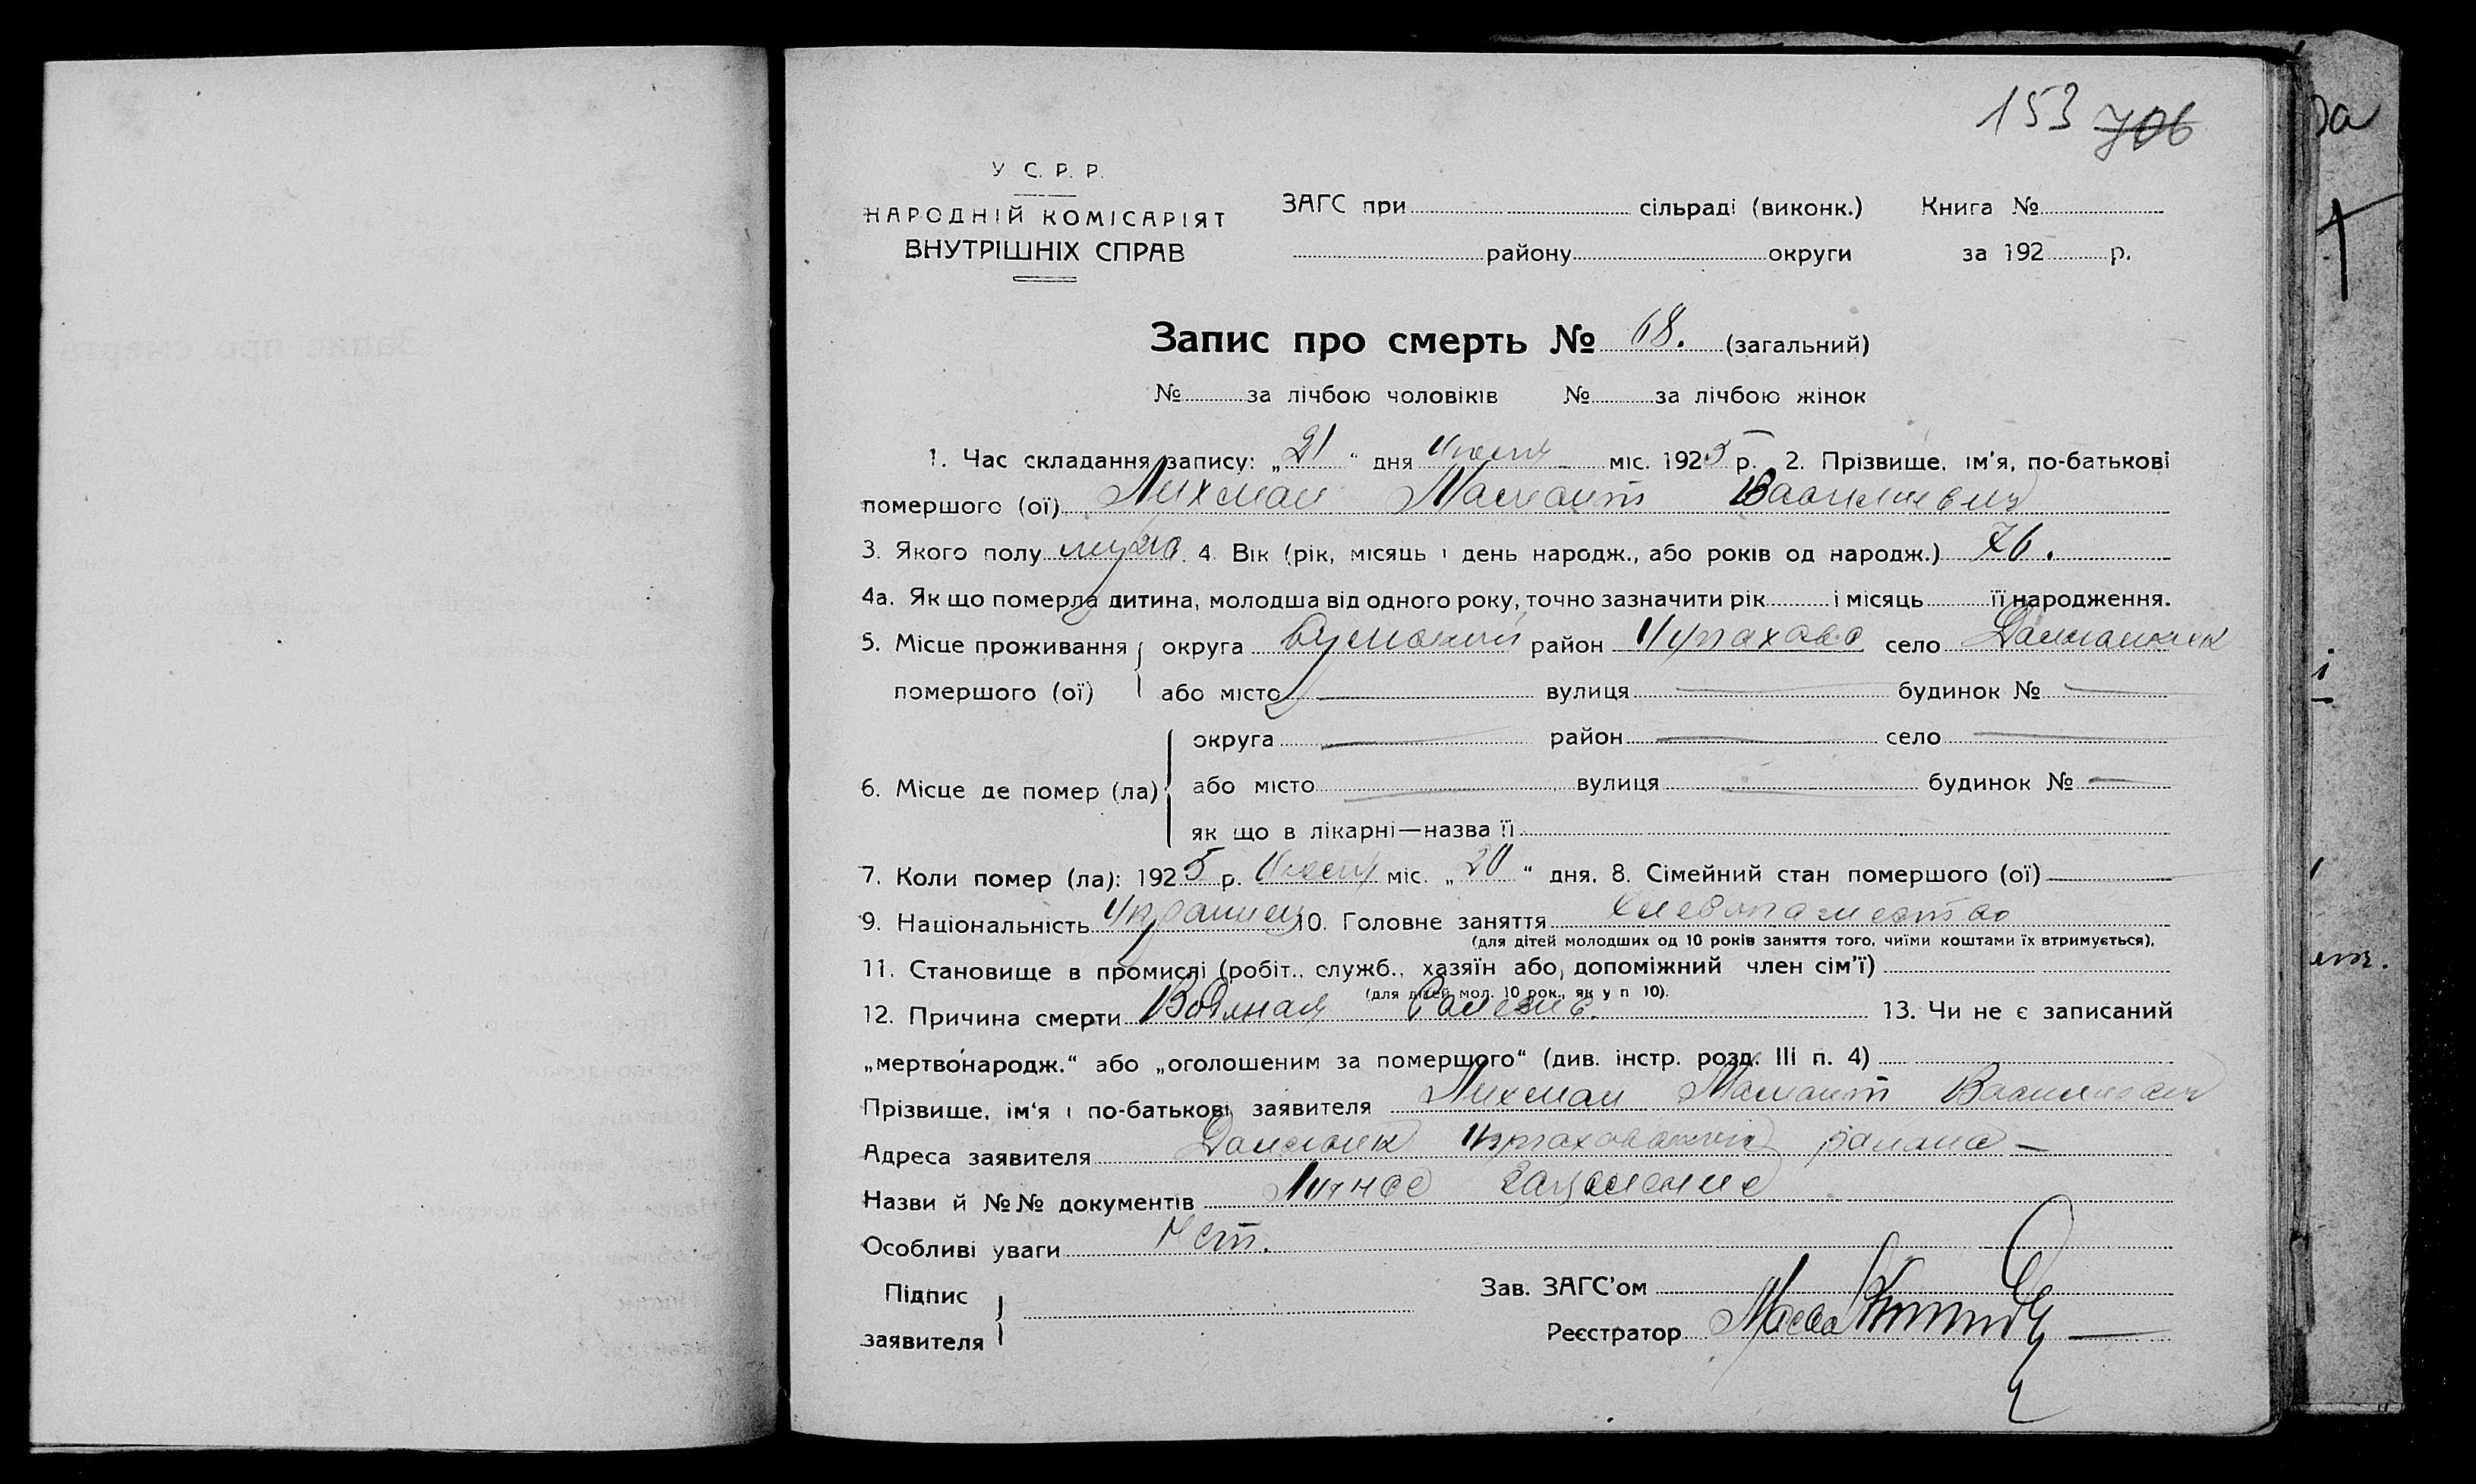 153 706
У С. Р. Р.
НАРОДНІЙ КОМІСАРІЯТ
ВНУТРІШНІХ СПРАВ
ЗАГС при сільраді (виконк.) Книга №
району округи за 192 р.
Запис про смерть № 68. (загальний)
№ за лічбою чоловіків № за лічбою жінок
1. Час складання запису: „21“ дня міс. 1925 р. 2. Прізвище, ім'я, по-батькові
помершого (ої) Лихман
3. Якого полу 4. Вік (рік, місяць і день народж., або років од народж.) 76.
4а. Як що померла дитина, молодша від одного року, точно зазначити рік і місяць її народження.
5. Місце проживання округа район село
помершого (ої) або місто — вулиця — будинок № —
округа — район — село —
6. Місце де помер (ла) або місто — вулиця — будинок № —
як що в лікарні—назва її
7. Коли помер (ла): 1925 р. міс. „20“ дня. 8. Сімейний стан помершого (ої) —
9. Національність Украинец 10. Головне заняття
(для дітей молодших од 10 років заняття того, чиїми коштами їх втримується).
11. Становище в промислі (робіт., служб., хазяїн або допоміжний член сім'ї)
(для дітей мол. 10 рок., як у п 10).
12. Причина смерти Водяная 13. Чи не є записаний
„мертвонародж.“ або „оголошеним за помершого“ (див. інстр. розд. III п. 4)
Прізвище, ім'я і по-батькові заявителя Лихман
Адреса заявителя района —
Назви й №№ документів Личное
Особливі уваги Нет.
Підпис
заявителя
Зав. ЗАГС'ом
Реєстратор